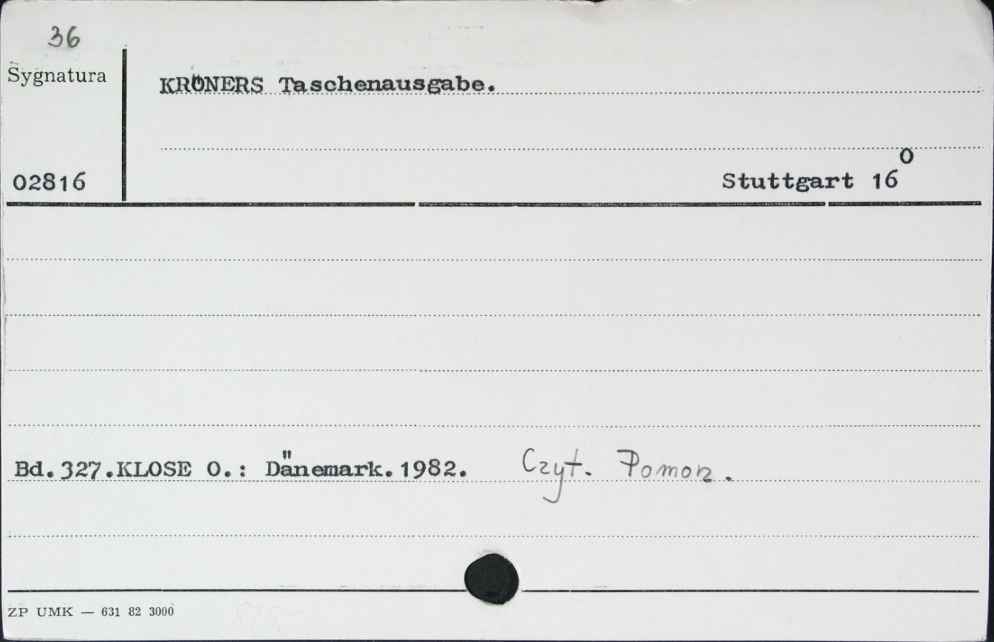 36
Sygnatura
KRÖNERS Taschenausgabe.
02816
Stuttgart 16⁰
Bd.327.KLOSE O.: Dänemark.1982. Czyt. Pomor.
ZP UMK — 631 82 3000